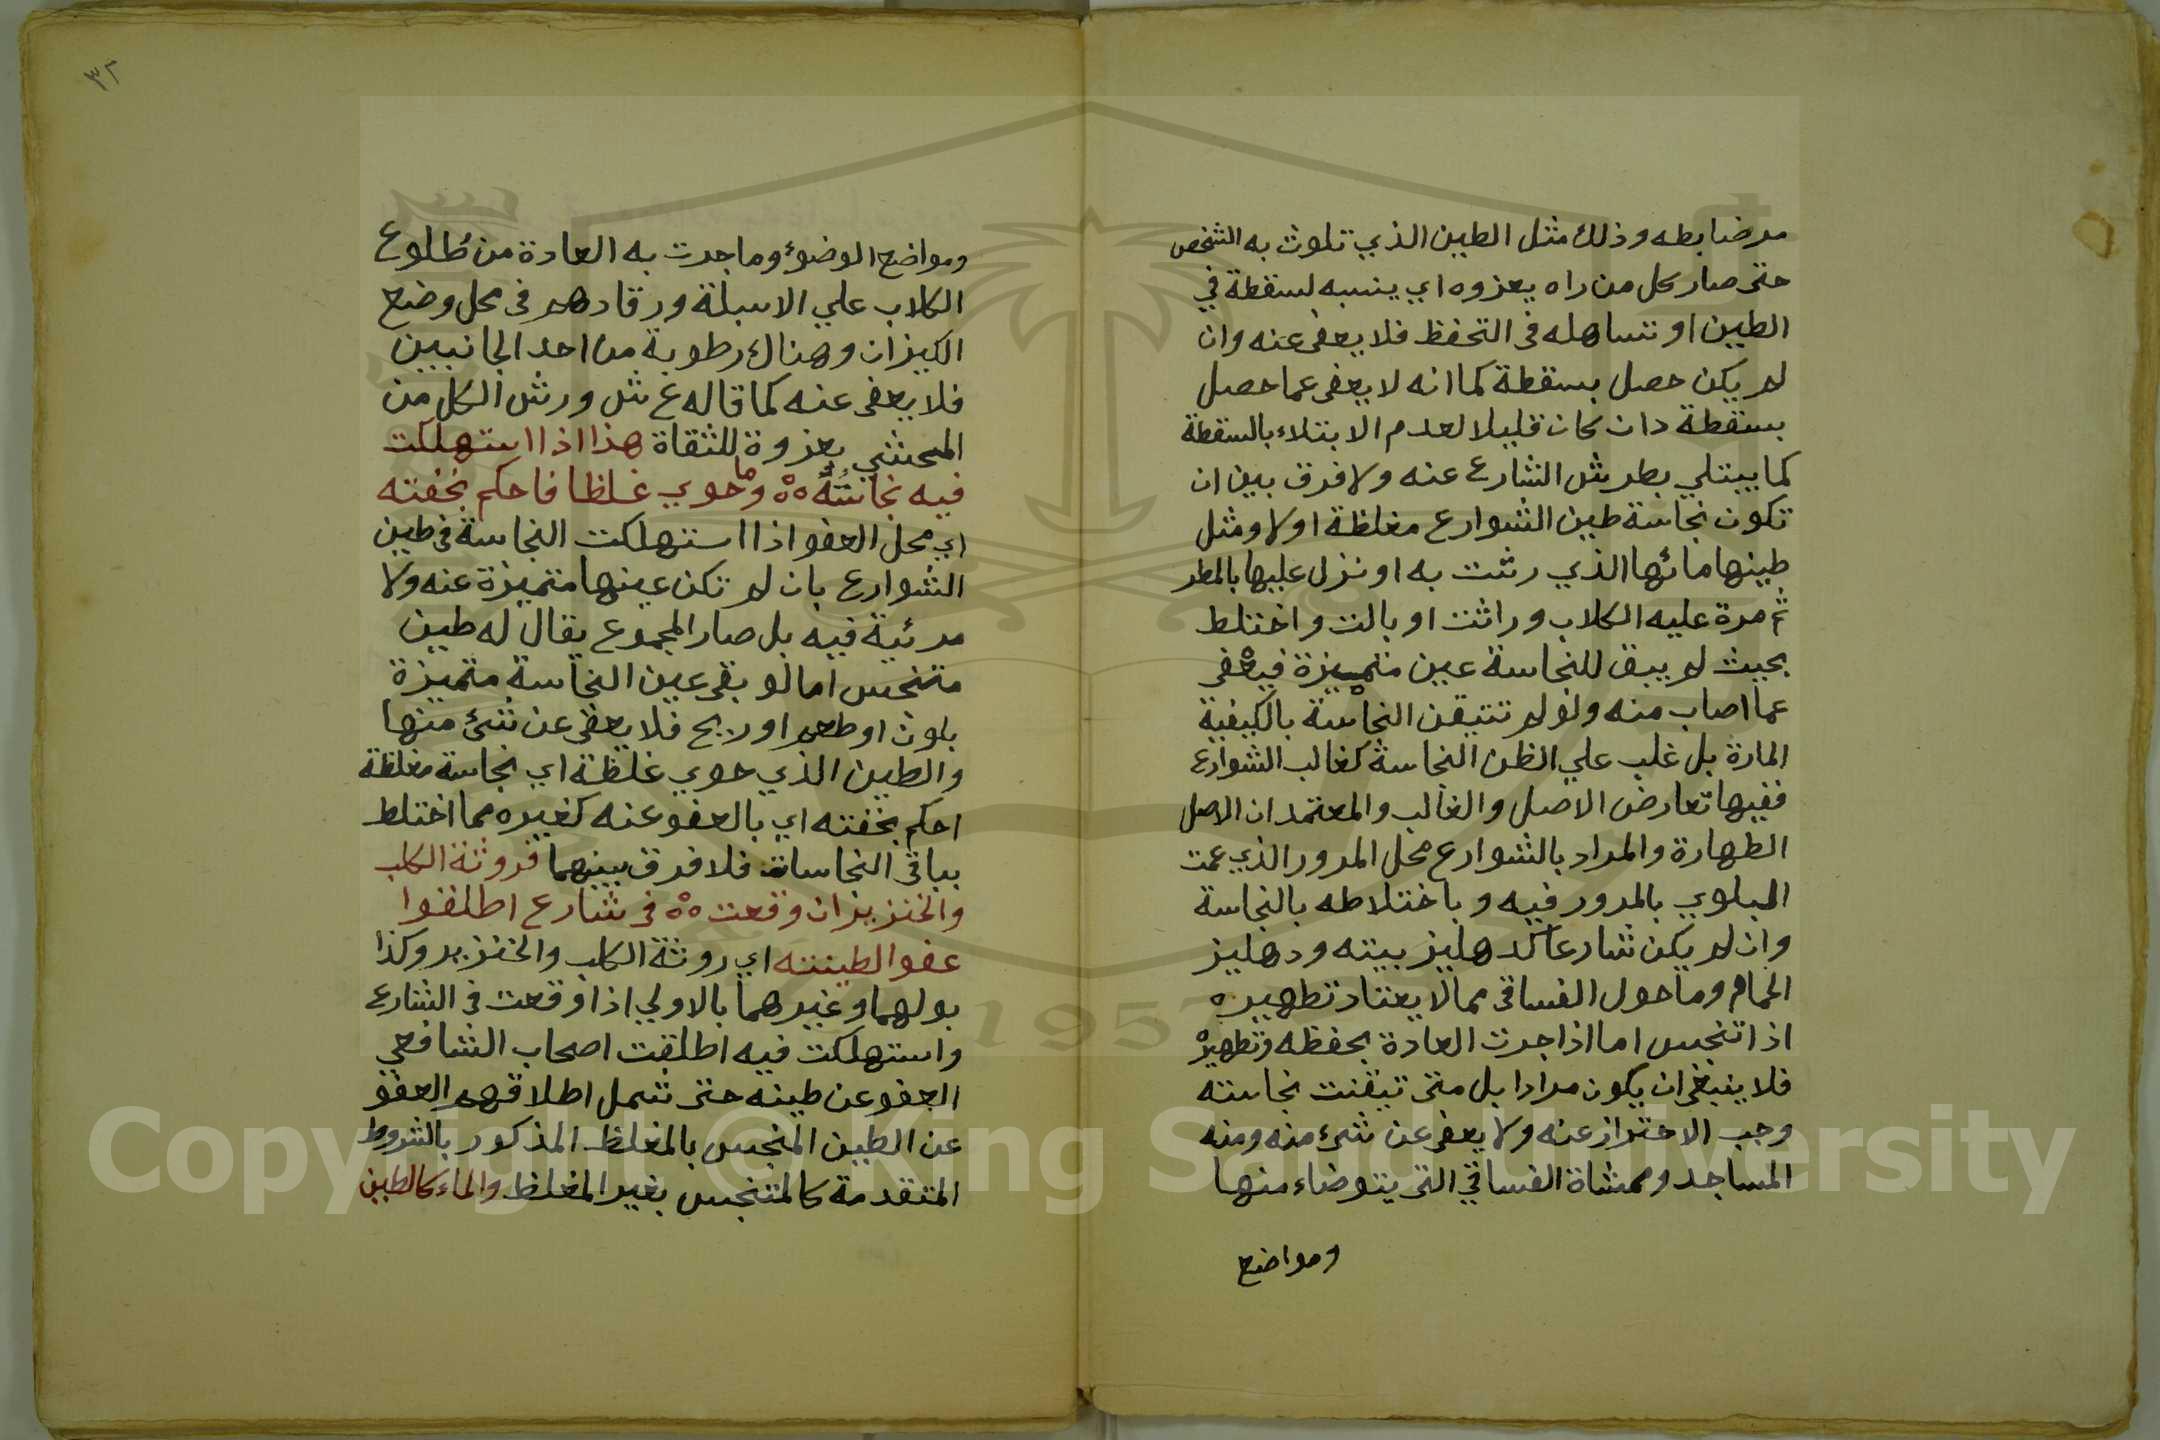 مر ضابطه وذلك مثل الطين الذي تلوث به الشخص
حتى صار كل من راه يعزوه اي ينسبه لسقطة في
الطين او تساهله في التحفظ فلا يعفى عنه وان
لم يكن حصل بسقطة كما انه لا يعفى عما حصل
بسقطة وان كان قليلا لعدم الابتلاء بالسقطة
كما يبتلي بطرش الشارع عنه ولا فرق بين ان
تكون نجاسة طين الشوارع مغلظة اولا ومثل
طينها مائها الذي رشت به او نزل عليها بالمطر
ثم مرة عليه الكلاب وراثت او بالت واختلط
بحيث لم يبق للنجاسة عين متميزة فيعفى
عما اصاب منه ولو لم تتيقن النجاسة بالكيفية
المارة بل غلب علي الظن النجاسة كغالب الشوارع
ففيها تعارض الاصل والغالب والمعتمد ان الاصل
الطهارة والمراد بالشوارع محل المرور الذي عمت
البلوي بالمرور فيه وباختلاطه بالنجاسة
وان لم يكن شارعا كدهليز بيته ودهليز
الحمام وما حول الفساقى مما لا يعتاد تطهيره
اذا تنجس اما اذا جرت العادة بحفظه وتطهيره
فلا ينبغى ان يكون مرادا بل متى تيقنت نجاسته
وجب الاحتراز عنه ولا يعفى عن شئ منه ومنه
المساجد وممشاة الفساقي التى يتوضاء منها
ومواضع
٣٢
ومواضع الوضوء وما جرت به العادة من طُلوع
الكلاب علي الاسبلة ورقادهم فى محل وضع
الكيزان وهناك رطوبة من احد الجانبين
فلا يعفى عنه كما قاله ع ش ورش الكل من
المحشي بعزوة للثقاة هذا اذا استهلكت
فيه نجاسَتُهُ ٥٥ وما حوي غلظا فاحكم بخفته
اي محل العفو اذا استهلكت النجاسة فى طين
الشوارع بان لم تكن عينها متميزة عنه ولا
مرئية فيه بل صار المجموع يقال له طين
متنجس اما لو بقى عين النجاسة متميزة
بلون او طعم او ريح فلا يعفى عن شئ منها
والطين الذي حوي غلظة اي نجاسة مغلظة
احكم بخفته اي بالعفو عنه كغيره مما اختلط
بباقى النجاسات فلا فرق بينهما فروثة الكلب
والخنزير ان وقعت ٥٥ فى شارع اطلقوا
عفو الطينته اي روثة الكلب والخنزير وكذا
بولهما وغيرهما بالاولي اذا وقعت فى الشارع
واستهلكت فيه اطلقت اصحاب الشافعي
العفو عن طينه حتى شمل اطلاقهم العفو
عن الطين المنجس بالمغلظ المذكور بالشروط
المتقدمة كالمتنجس بغير المغلظ والماء كالطين
Copyright © King Saud University
1957